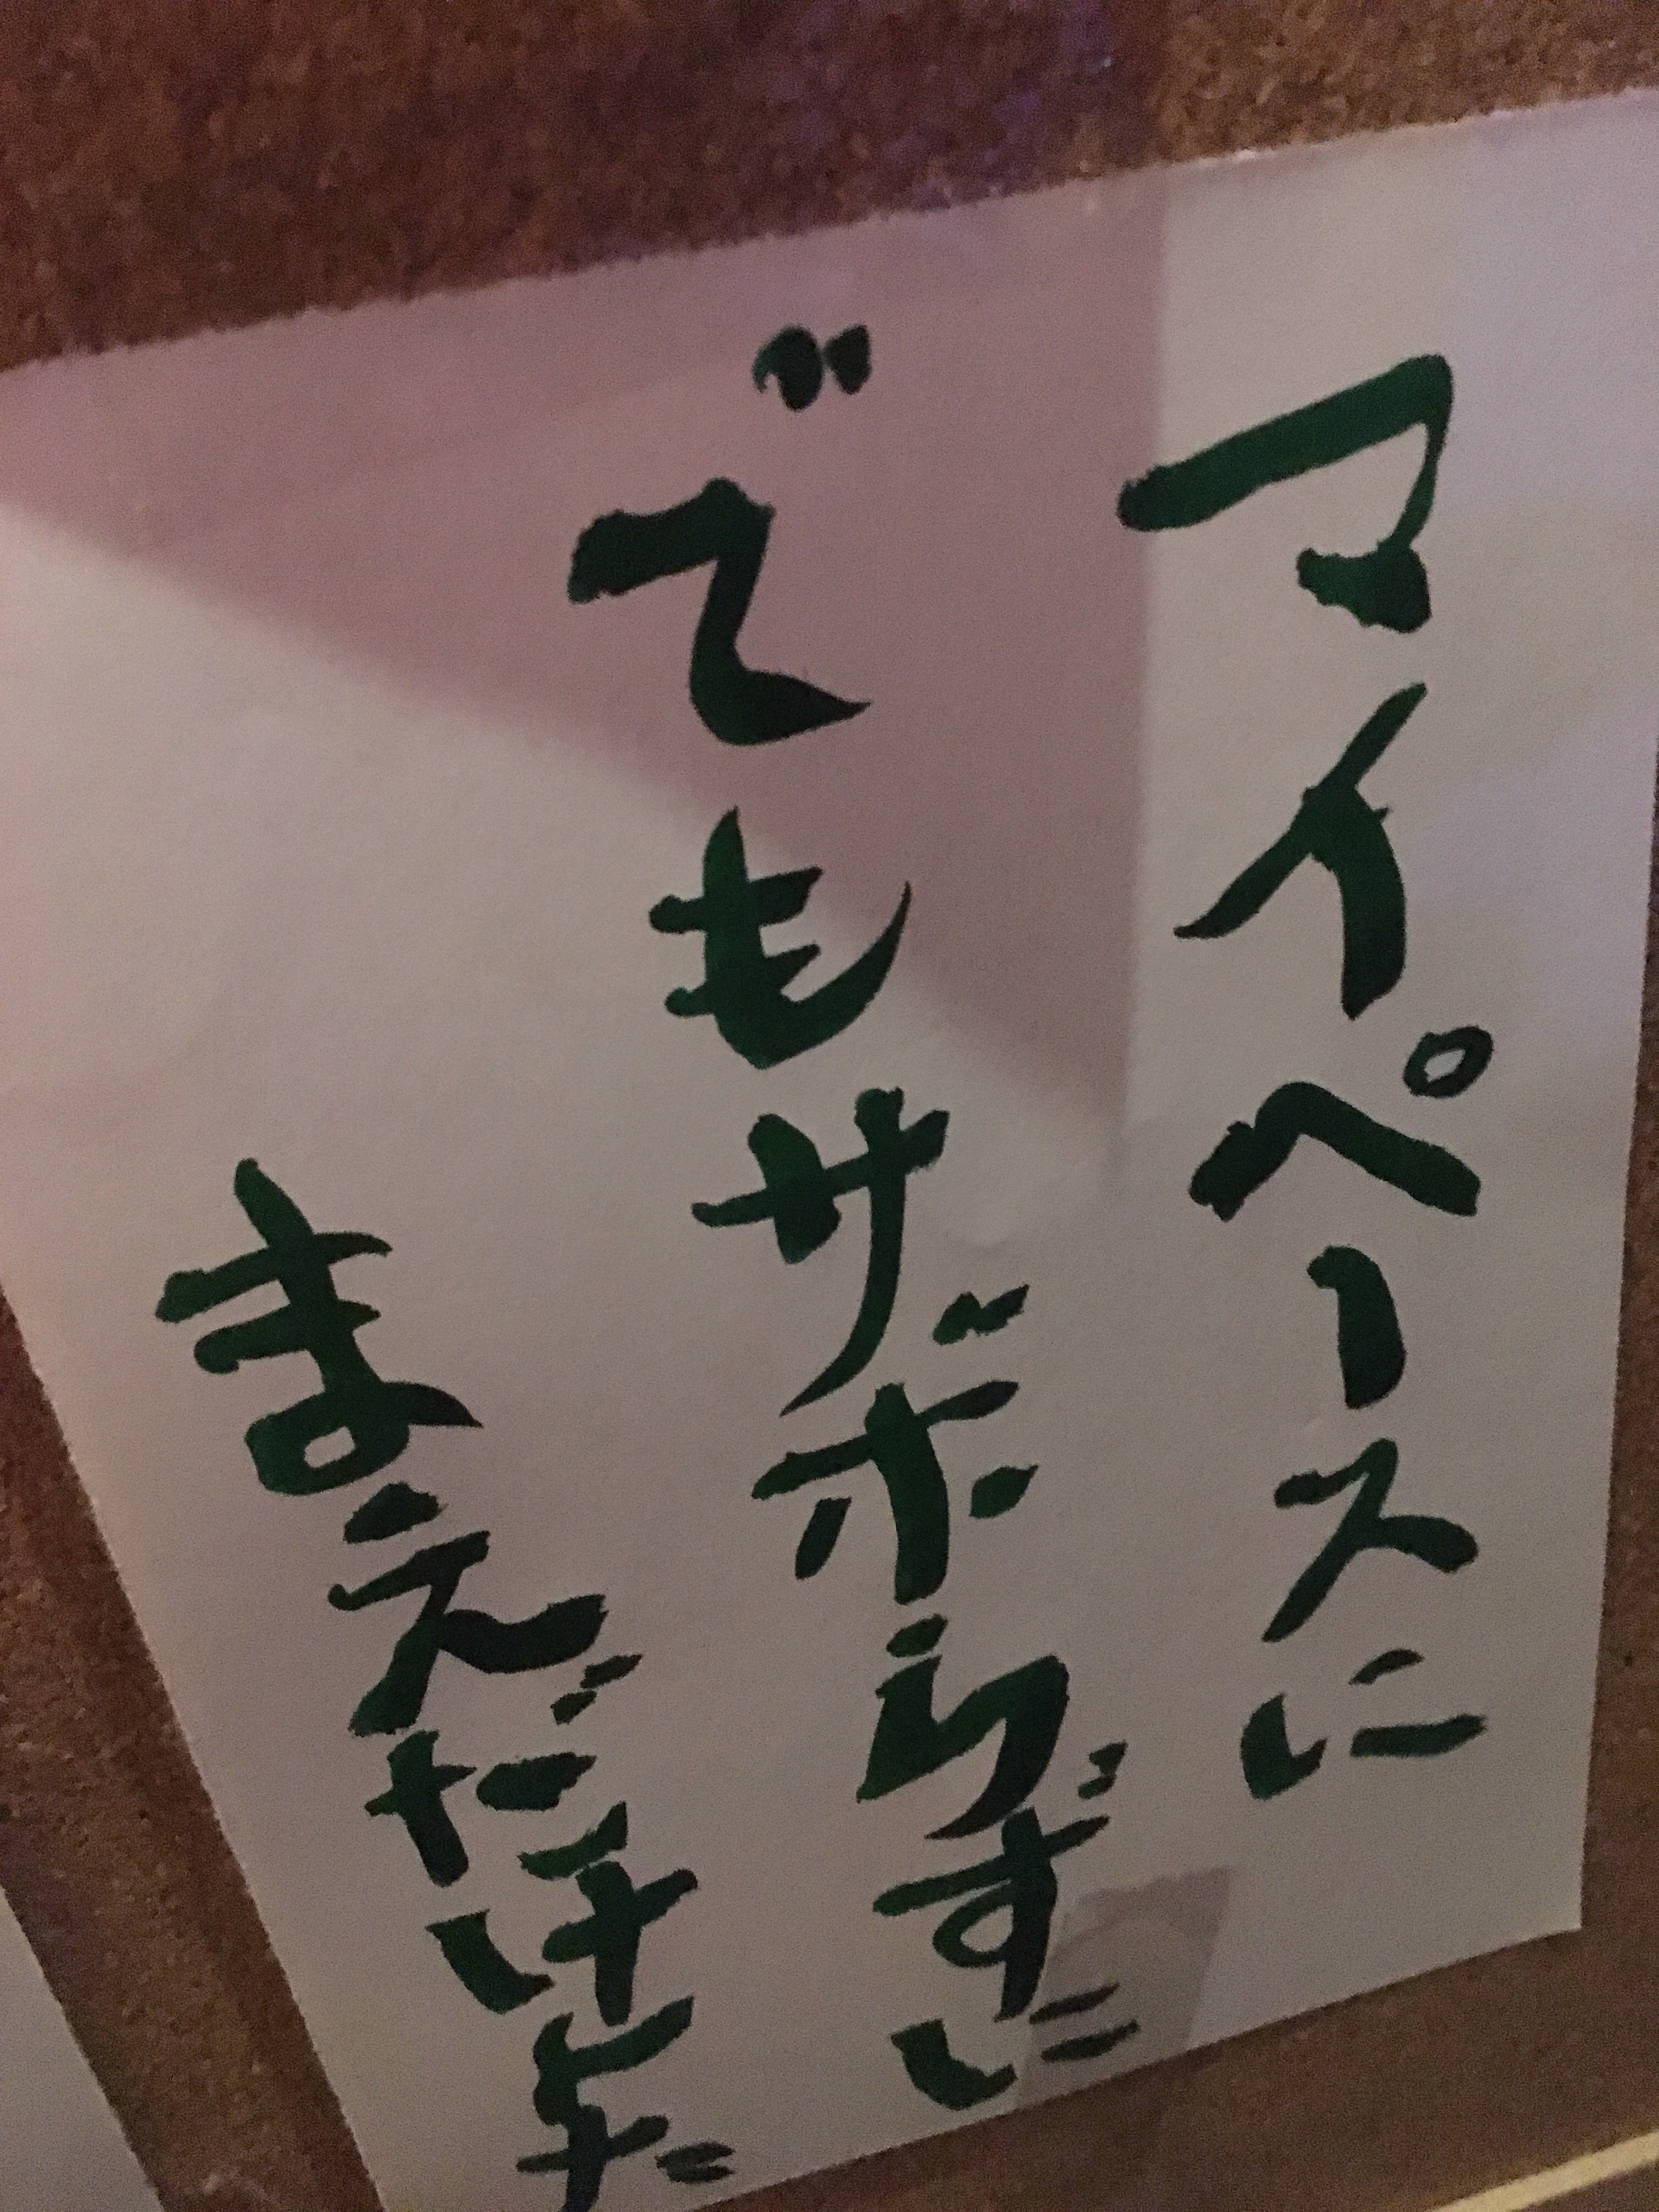 マイペースに
でもサボらずに
まえだけ